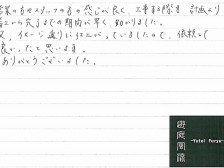 営業の方もスタッフの方の感じが良く、工事する際も計画より
着工から完了までの期間が早く、助かりました。
又、イメージ通りに仕上がっていましたので、依頼して
良かったと思います。
ありがとうございました。
遊庭風流
-Yutei Furyu-